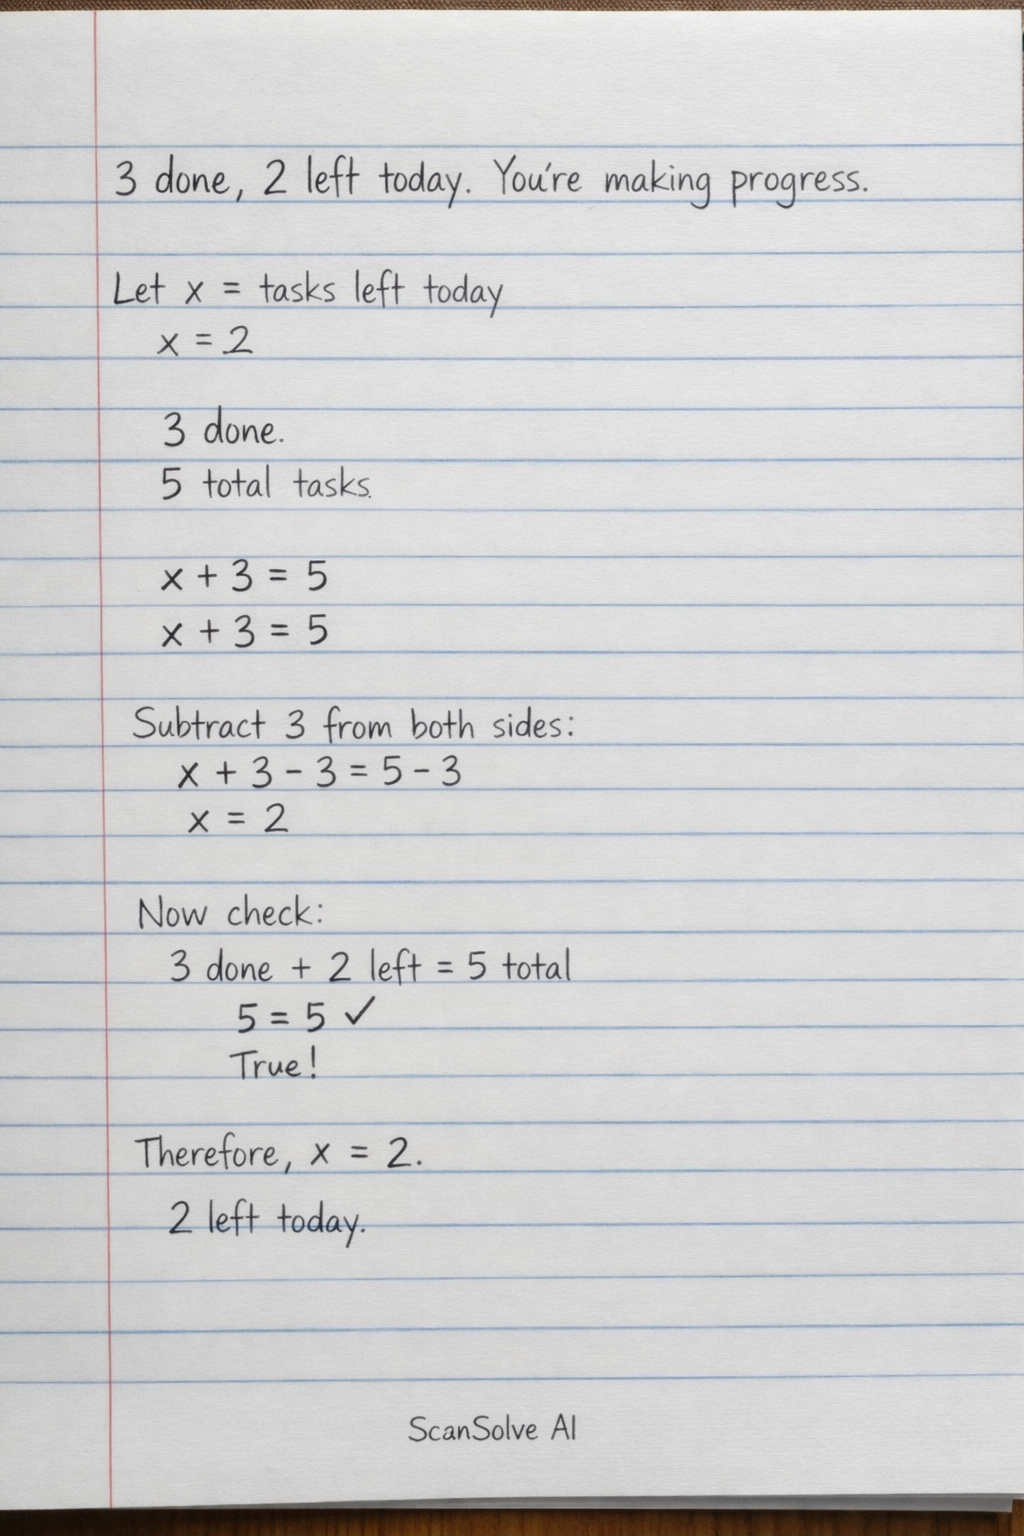 3 done, 2 left today. You're making progress.
Let x = tasks left today
x = 2
3 done.
5 total tasks.
x + 3 = 5
x + 3 = 5
Subtract 3 from both sides:
x + 3 - 3 = 5 - 3
x = 2
Now check:
3 done + 2 left = 5 total
5 = 5 ✓
True!
Therefore, x = 2.
2 left today.
ScanSolve AI